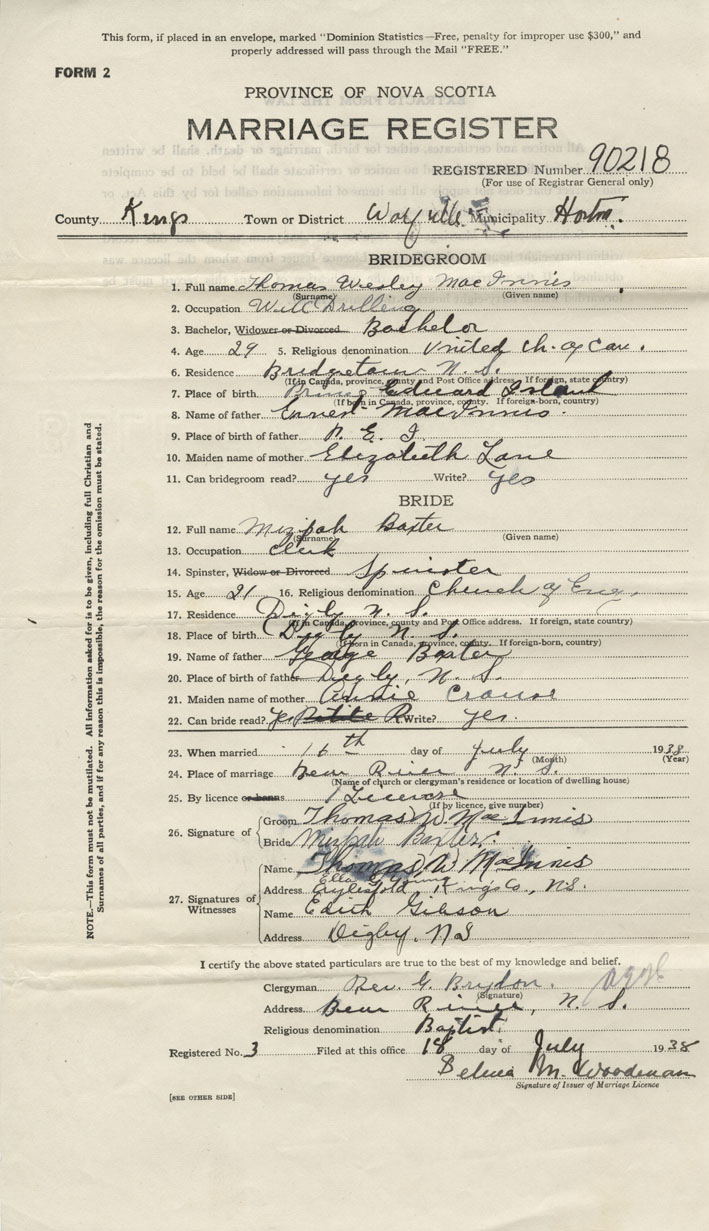 This form, if placed in an envelope, marked "Dominion Statistics—Free, penalty for improper use $300," and
properly addressed will pass through the Mail "FREE."
FORM 2
PROVINCE OF NOVA SCOTIA
MARRIAGE REGISTER
REGISTERED Number 90218
(For use of Registrar General only)
County Kings Town or District Wolfville Municipality Horton.
BRIDEGROOM
1. Full name Thomas Wesley MacInnis
(Surname) (Given name)
2. Occupation Well Drilling
3. Bachelor, Widower or Divorced Bachelor
4. Age 29 5. Religious denomination United Ch. of Can.
6. Residence Bridgetown N. S.
(If in Canada, province, county and Post Office address. If foreign, state country)
7. Place of birth Prince Edward Island
(If born in Canada, province, county. If foreign-born, country)
8. Name of father Ernest MacInnis.
9. Place of birth of father P. E. I.
10. Maiden name of mother Elizabeth Lane
11. Can bridegroom read? yes Write? yes
BRIDE
12. Full name Mizpah Baxter
(Surname) (Given name)
13. Occupation Clerk
14. Spinster, Widow or Divorced Spinster
15. Age 21 16. Religious denomination Church of Eng.
17. Residence Digby N. S.
(If in Canada, province, county and Post Office address. If foreign, state country)
18. Place of birth Digby N. S.
(If born in Canada, province, county. If foreign-born, country)
19. Name of father George Baxter
20. Place of birth of father Digby, N. S.
21. Maiden name of mother Annie Crouse
22. Can bride read? yes Write? yes.
23. When married 16th day of July 1938
(Month) (Year)
24. Place of marriage Bear River N. S.
(Name of church or clergyman's residence or location of dwelling house)
25. By licence or banns 1 Licence
(If by licence, give number)
26. Signature of
Groom Thomas W MacInnis
Bride Mizpah Baxter.
27. Signatures of Witnesses
Name Thomas W MacInnis
Ella G Young
Address Aylesford, Kings Co., N.S.
Name Edith Gibson
Address Digby, N S
I certify the above stated particulars are true to the best of my knowledge and belief.
Clergyman Rev. G. Brydon.
(Signature)
Address Bear River, N. S.
Religious denomination Baptist
Registered No. 3 Filed at this office 18 day of July 1938
M. Woodman
Signature of Issuer of Marriage Licence
[SEE OTHER SIDE]
NOTE.—This form must not be mutilated. All information asked for is to be given, including full Christian and
Surnames of all parties, and if for any reason this is impossible, the reason for the omission must be stated.